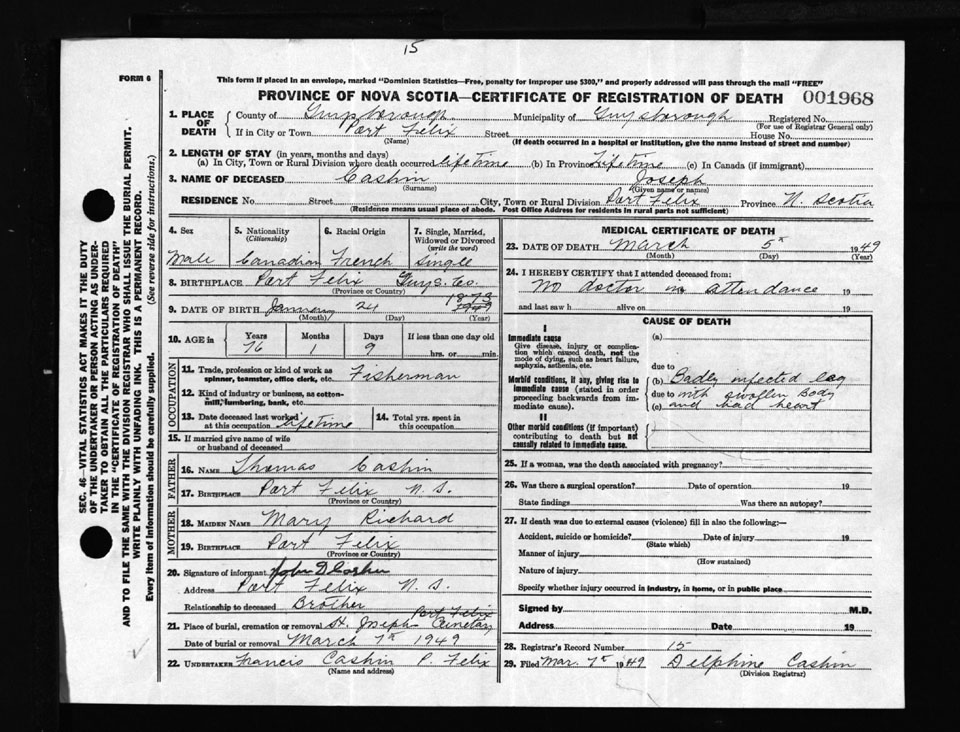 15
FORM 6
This form if placed in an envelope, marked "Dominion Statistics—Free, penalty for improper use $300," and properly addressed will pass through the mail "FREE"
PROVINCE OF NOVA SCOTIA—CERTIFICATE OF REGISTRATION OF DEATH 001968
1. PLACE OF DEATH
County of Guysborough Municipality of Guysborough Registered No.
(For use of Registrar General only)
If in City or Town Port Felix Street House No.
(Name) (If death occurred in a hospital or institution, give the name instead of street and number)
2. LENGTH OF STAY (in years, months and days)
(a) In City, Town or Rural Division where death occurred lifetime (b) In Province Lifetime (c) In Canada (if immigrant)
3. NAME OF DECEASED Cashin Joseph
(Surname) (Given name or names)
RESIDENCE No. Street City, Town or Rural Division Port Felix Province N. Scotia
(Residence means usual place of abode. Post Office Address for residents in rural parts not sufficient)
4. Sex 5. Nationality (Citizenship) 6. Racial Origin 7. Single, Married, Widowed or Divorced (write the word)
Male Canadian French Single
8. BIRTHPLACE Port Felix Guys. Co.
(Province or Country)
1873
9. DATE OF BIRTH January 24 1949
(Month) (Day) (Year)
10. AGE in Years Months Days If less than one day old
76 1 9 hrs. or min.
OCCUPATION
11. Trade, profession or kind of work as spinner, teamster, office clerk, etc. Fisherman
12. Kind of industry or business, as cotton-mill, lumbering, bank, etc.
13. Date deceased last worked at this occupation lifetime
14. Total yrs. spent in this occupation
15. If married give name of wife or husband of deceased
FATHER
16. NAME Thomas Cashin
17. BIRTHPLACE Port Felix N. S.
(Province or Country)
MOTHER
18. MAIDEN NAME Mary Richard
19. BIRTHPLACE Port Felix
(Province or Country)
20. Signature of informant John D Cashin
Address Port Felix N. S.
Relationship to deceased Brother
21. Place of burial, cremation or removal St. Joseph Port Felix Cemetary
Date of burial or removal March 7th 1949
22. UNDERTAKER Francis Cashin P. Felix
(Name and address)
MEDICAL CERTIFICATE OF DEATH
23. DATE OF DEATH March 5th 1949
(Month) (Day) (Year)
24. I HEREBY CERTIFY that I attended deceased from:
No doctor in attendance 19
and last saw h alive on 19
CAUSE OF DEATH
I
Immediate cause
Give disease, injury or complication which caused death, not the mode of dying, such as heart failure, asphyxia, asthenia, etc.
(a)
due to
Morbid conditions, if any, giving rise to immediate cause (stated in order proceeding backwards from immediate cause).
(b) Badly infected leg
due to with swollen body
(c) and bad heart
II
Other morbid conditions (if important) contributing to death but not causally related to immediate cause.
25. If a woman, was the death associated with pregnancy?
26. Was there a surgical operation? Date of operation 19
State findings Was there an autopsy?
27. If death was due to external causes (violence) fill in also the following:—
Accident, suicide or homicide? Date of injury 19
(State which)
Manner of injury
(How sustained)
Nature of injury
Specify whether injury occurred in industry, in home, or in public place
Signed by M.D.
Address Date 19
28. Registrar's Record Number 15
29. Filed Mar. 7th 1949 Delphine Cashin
(Division Registrar)
SEC. 46—VITAL STATISTICS ACT MAKES IT THE DUTY
OF THE UNDERTAKER OR PERSON ACTING AS UNDER-
TAKER TO OBTAIN ALL THE PARTICULARS REQUIRED
IN THE "CERTIFICATE OF REGISTRATION OF DEATH"
AND TO FILE THE SAME WITH THE DIVISION REGISTRAR WHO SHALL ISSUE THE BURIAL PERMIT.
WRITE PLAINLY WITH UNFADING INK. THIS IS A PERMANENT RECORD.
Every item of information should be carefully supplied. (See reverse side for instructions.)